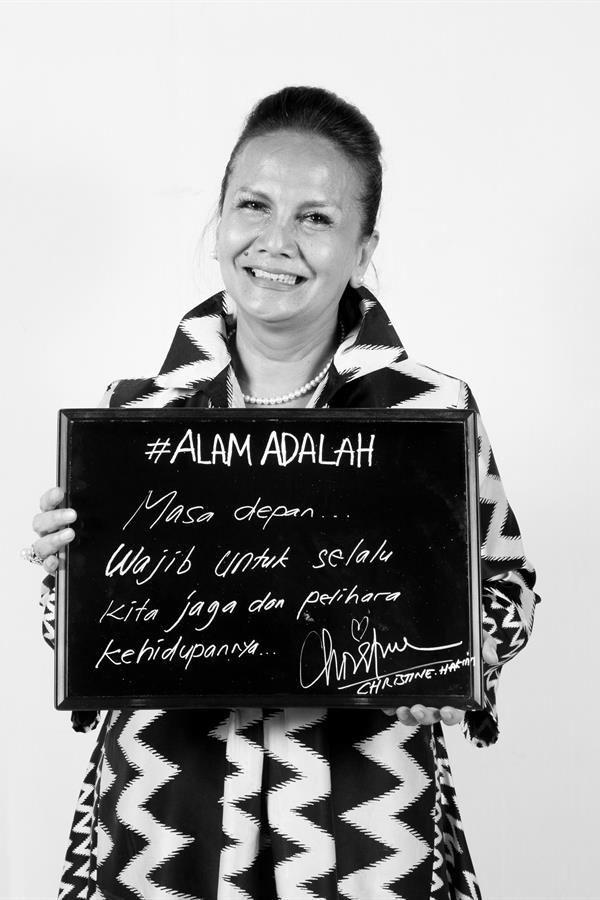 #ALAM ADALAH
Masa depan...
Wajib untuk selalu
kita jaga dan pelihara
kehidupannya...
Christine
CHRISTINE.HAKIM